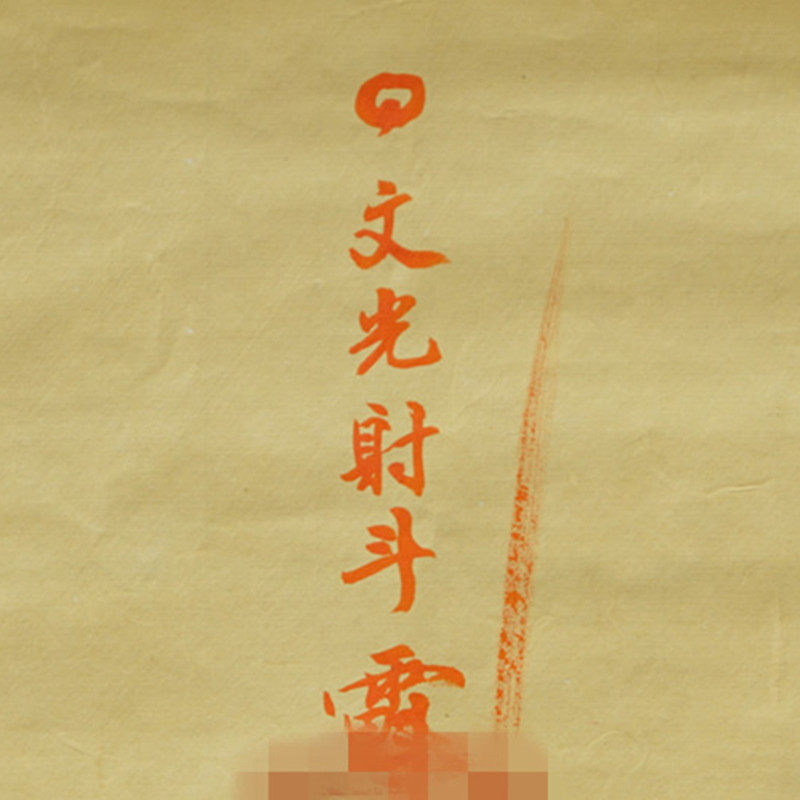 文光射斗